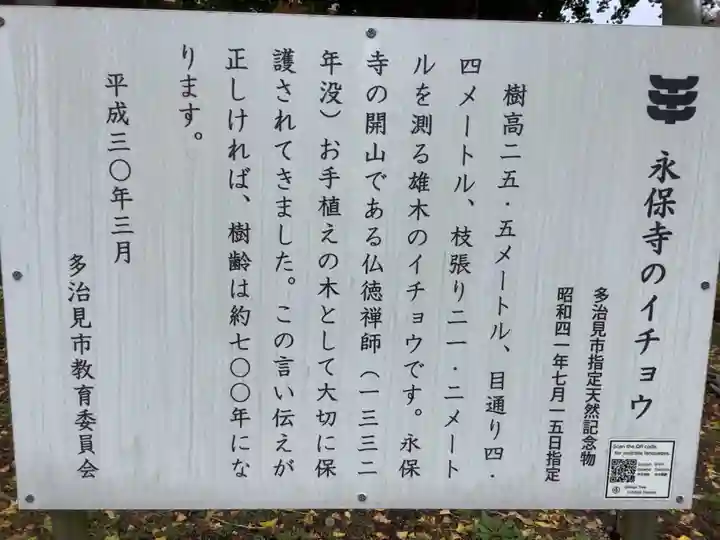 永保寺のイチョウ
多治見市指定天然記念物
昭和四一年七月一五日指定
樹高二五・五メートル、目通り四・
四メートル、枝張り二一・二メート
ルを測る雄木のイチョウです。永保
寺の開山である仏徳禅師(一三三二
年没)お手植えの木として大切に保
護されてきました。この言い伝えが
正しければ、樹齢は約七〇〇年にな
ります。
平成三〇年三月
多治見市教育委員会
Scan the QR code
for multiple languages.